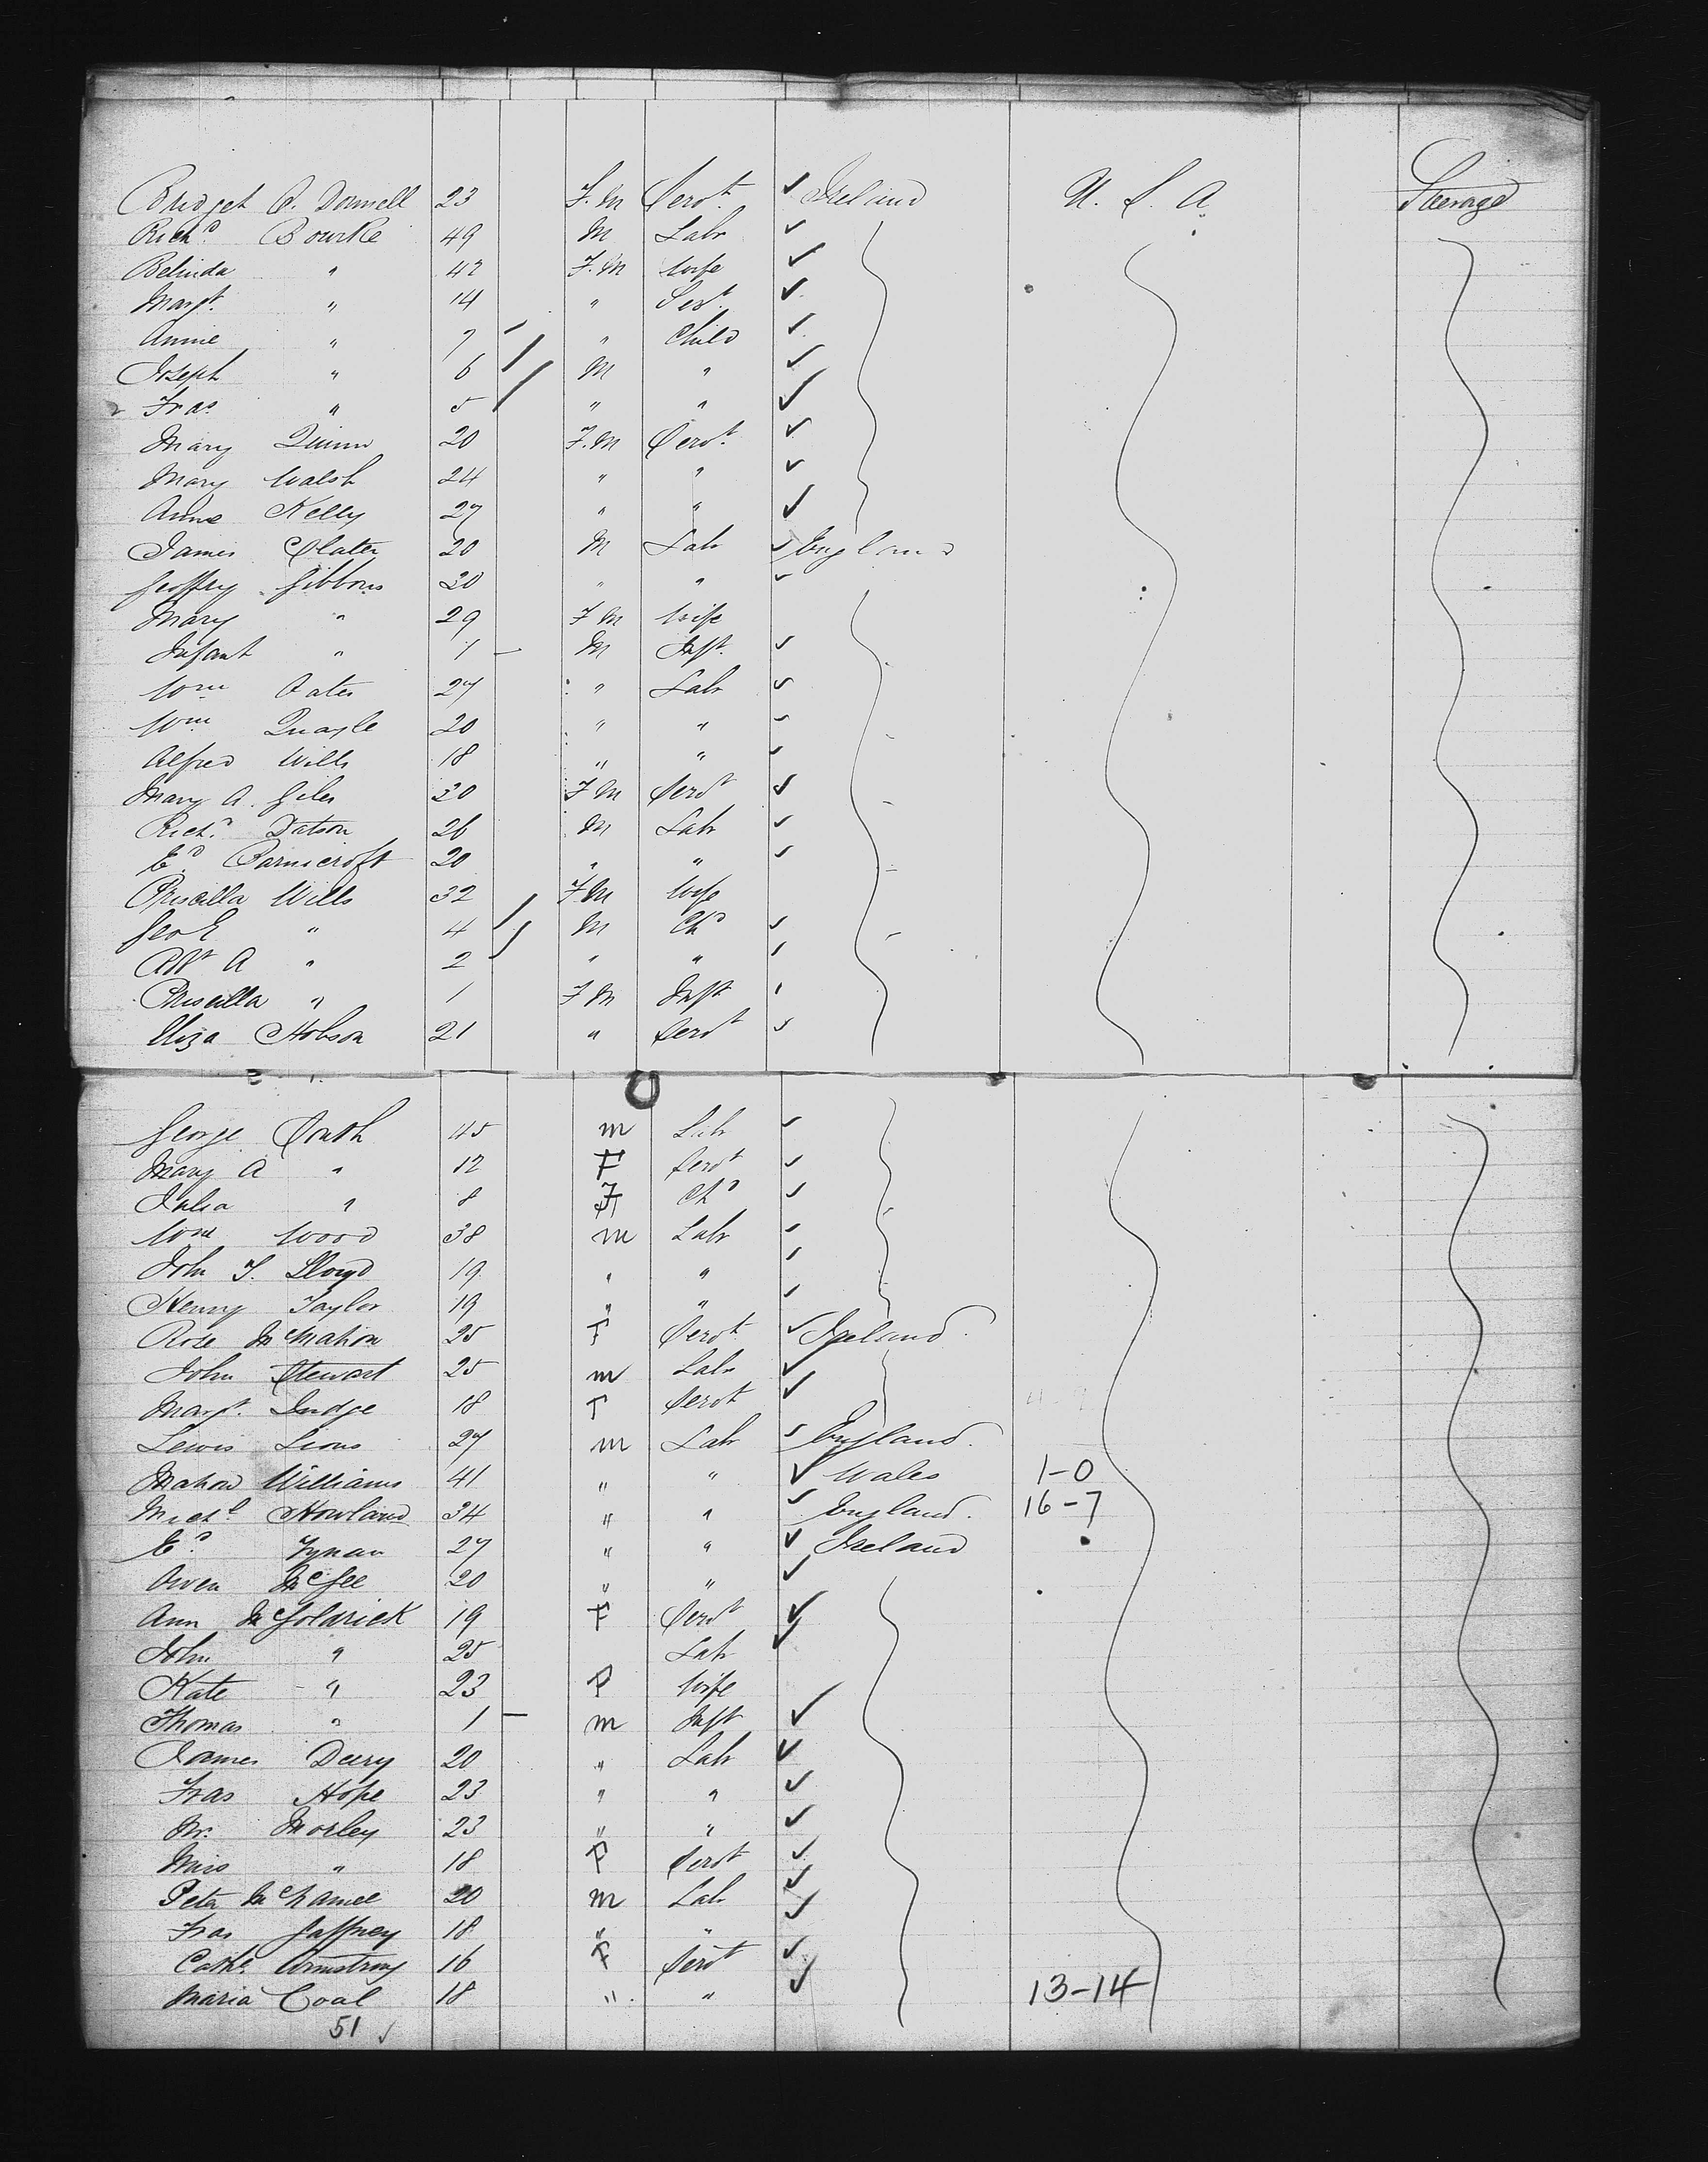 Bridget O. Donnell 23 F.M Servt ✓ Ireland U. S. A. Steerage
Richd Bourke 49 M Labr ✓
Belinda " 42 F.M Wife ✓
Margt " 14 " Sert ✓
Annie " 7 " Child ✓
Joseph " 6 M " ✓
Fras " 5 " " ✓
Mary Quinn 20 F.M Servt ✓
Mary Walsh 24 " " ✓
Anne Kelly 27 " " ✓
James Slater 20 M Labr ✓ England
Geoffry Gibbons 20 " " ✓
Mary " 29 F M Wife
Infant " 1 — M Inft ✓
Wm Oates 27 " Labr ✓
Wm Quayle 20 " " ✓
Alfred Wills 18 " " ✓
Mary A. Giles 20 F M Servt ✓
Richd Datson 26 M Labr ✓
Ed Parnicroft 20 " " ✓
Priscilla Wills 32 F M Wife
Geo E " 4 M Chd ✓
A " 2 " "
Priscilla " 1 F M Inft
Eliza Hobson 21 " Servt ✓
George South 45 m Labr ✓
Mary A " 12 F Servt ✓
Julia " 8 F Chd ✓
Wm Wood 38 m Labr ✓
John T. Lloyd 19 " " ✓
Henry Taylor 19 " " ✓
Rose McMahon 25 F Servt ✓ Ireland
John Stewart 25 m Labr ✓
Margt. Judge 18 F Servt ✓
Lewis Lions 27 m Labr ✓ England
Mahon Williams 41 " " ✓ Wales 1-0
Michl Howland 34 " " ✓ England 16-7
Ed Tynan 27 " " ✓ Ireland
Owen McGee 20 " " ✓
Ann McGoldrick 19 F Servt ✓
John " 25 Labr ✓
Kate " 23 F Wife
Thomas " 1 — m Inft ✓
James Deery 20 " Labr ✓
Fras Hope 23 " " ✓
Mr. Morley 23 " " ✓
Miss " 18 F Servt ✓
Peter McNamee 20 m Labr ✓
Fras Gaffney 18 " " ✓
Cathe Armstrong 16 F Servt ✓
Maria Coal 18 " " ✓ 13-14
51 ✓